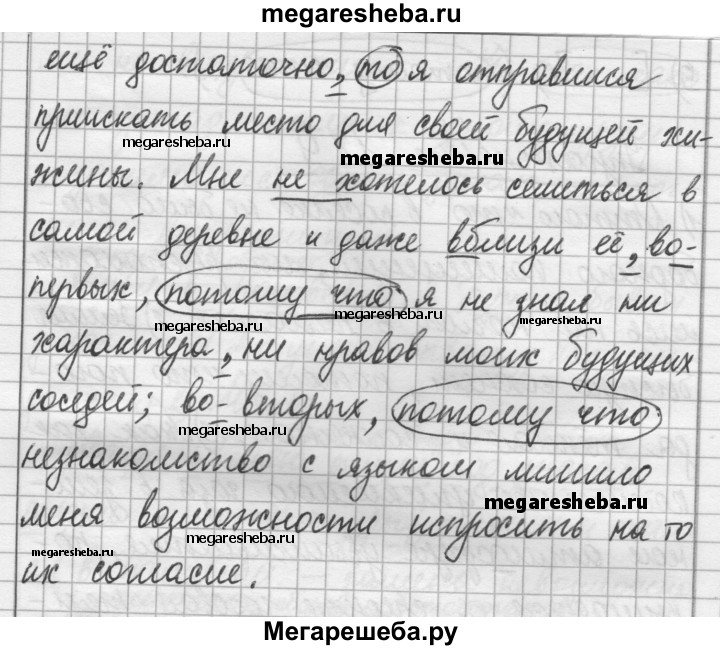 megaresheba.ru
ещё достаточно, то я отправился
приискать место для своей будущей хи-
megaresheba.ru
megaresheba.ru
жины. Мне не хотелось селиться в
самой деревне и даже вблизи её, во-
megaresheba.ru
первых, потому что я не знал ни
megaresheba.ru
megaresheba.ru
характера, ни нравов моих будущих
соседей; во-вторых, потому что
megaresheba.ru
незнакомство с языком лишило
megaresheba.ru
меня возможности испросить на то
megaresheba.ru
megaresheba.ru
их согласие.
Мегарешеба.ру